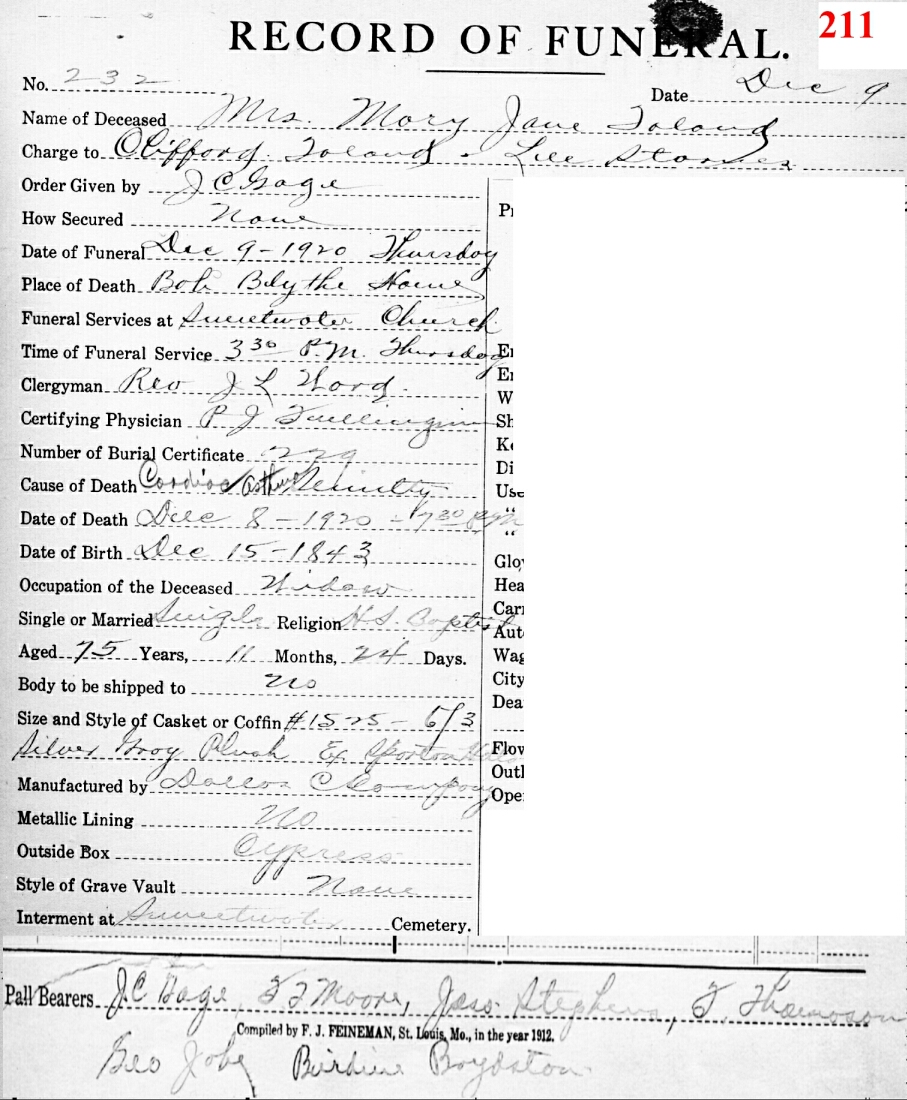 211
RECORD OF FUNERAL.
No. 232
Date Dec 9
Name of Deceased Mrs. Mary Jane Toland
Charge to Clifford Toland - Lee
Order Given by J C Gage
How Secured None
Date of Funeral Dec 9-1920 Thursday
Place of Death Bob Blythe Home
Funeral Services at Sweetwater Church
Time of Funeral Service 3 30 P.M. Thursday
Clergyman Rev J L Ward.
Certifying Physician P J
Number of Burial Certificate 229
Cause of Death Cardiac
Date of Death Dec 8-1920 - 7 30
Date of Birth Dec 15-1843
Occupation of the Deceased Widow
Single or Married Single Religion H.S. Baptist
Aged 75 Years, 11 Months, 24 Days.
Body to be shipped to No
Size and Style of Casket or Coffin #1525- 6/3
Silver Gray Plush Ex
Manufactured by Dallas C Company
Metallic Lining No
Outside Box Cypress
Style of Grave Vault None
Interment at Sweetwater Cemetery.
W
Di
Use
“
“
Glov
Hea
Carr
Auto
Wag
City
Dea
Flow
Outl
Ope
Pall Bearers J.C Gage, F F Moore, Jass. Stephens, T. Thomason
Compiled by F. J. FEINEMAN, St. Louis, Mo., in the year 1912.
Geo Jobe Birdine Boydston